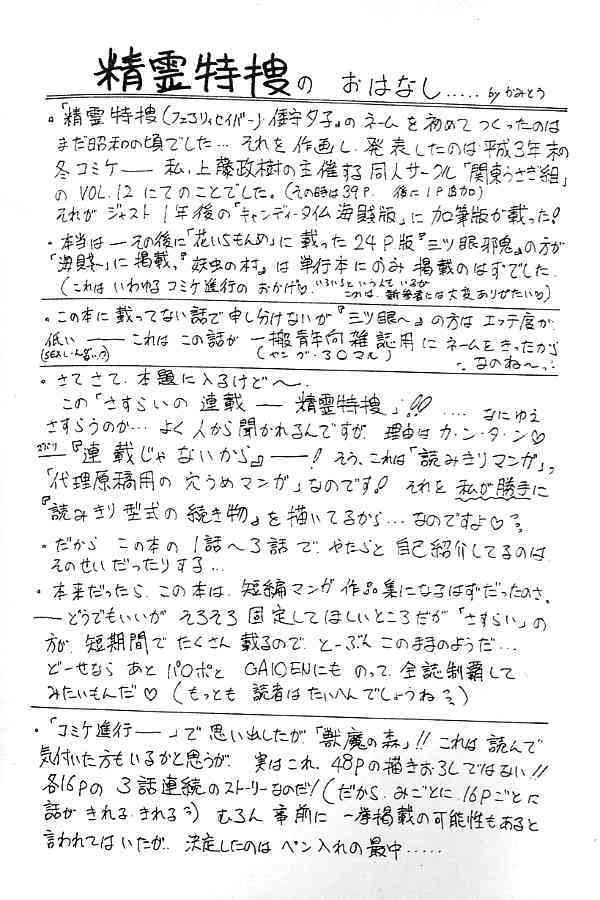 精霊特捜の おはなし..... byかみとう
・「精霊特捜(フェアリィセイバー)倭宇夕子」のネームを初めてつくったのは
まだ昭和の頃でした… それを作画し、発表したのは平成3年末の
冬コミケ── 私、上藤政樹の主催する同人サークル「関東うさぎ組」
のVOL.12にてのことでした。(その時は39P. 後に1P追加)
それがジャスト1年後の「キャンディータイム海賊版」に加筆版が載った!
・本当は─その後に「花いちもんめ」に載った24P版『三ツ眼邪鬼』の方が
「海賊〜」に掲載、『妖虫の村』は単行本にのみ掲載のはずでした.
(これはいわゆるコミケ進行のおかげ♡.いろいろという人もいるが
これは、新参者には大変ありがたい♡)
・この本に載ってない話で申し分けないが『三ツ眼〜』の方はエッチ度が
低い ── これはこの話が一搬青年向雑誌用にネームをきったから
(ヤング・30マル) …なのね〜…
・さてさて.本題に入るけど〜.
この「さすらいの連載 ── 精霊特捜」!! .... なにゆえ
さすらうのか… よく人から聞かれるんですが、理由はカ・ン・タ・ン♡
ズバリ『連載じゃないから』──! そう、これは「読みきりマンガ」、
「代理原稿用の穴うめマンガ」なのです! それを私が勝手に
『読みきり型式の続き物』を描いてるから… なのですよ♡
・だから この本の1話〜3話で、やたらと自己紹介してるのは
そのせいだったりする…
・本来だったら、この本は、短編マンガ作品集になるはずだったのさ.
── どうでもいいが そろそろ固定してほしいところだが「さすらい」の
方が、短期間でたくさん載るので、とーぶん このままのようだ…
どーせなら あと パロポと GAIDENにも のって、全誌制覇して
みたいもんだ♡ (もっとも 読者は たいへんでしょうね)
・「コミケ進行──」で思い出したが「獣魔の森」!! これは読んで
気付いた方もいるかと思うが、実はこれ、48Pの描きおろしではない!!
各16Pの 3話連続のストーリーなのだ! (だから、みごとに、16Pごとに
話が きれる.きれる) むろん 事前に 一挙掲載の可能性もあると
言われてはいたが、決定したのはペン入れの最中.....